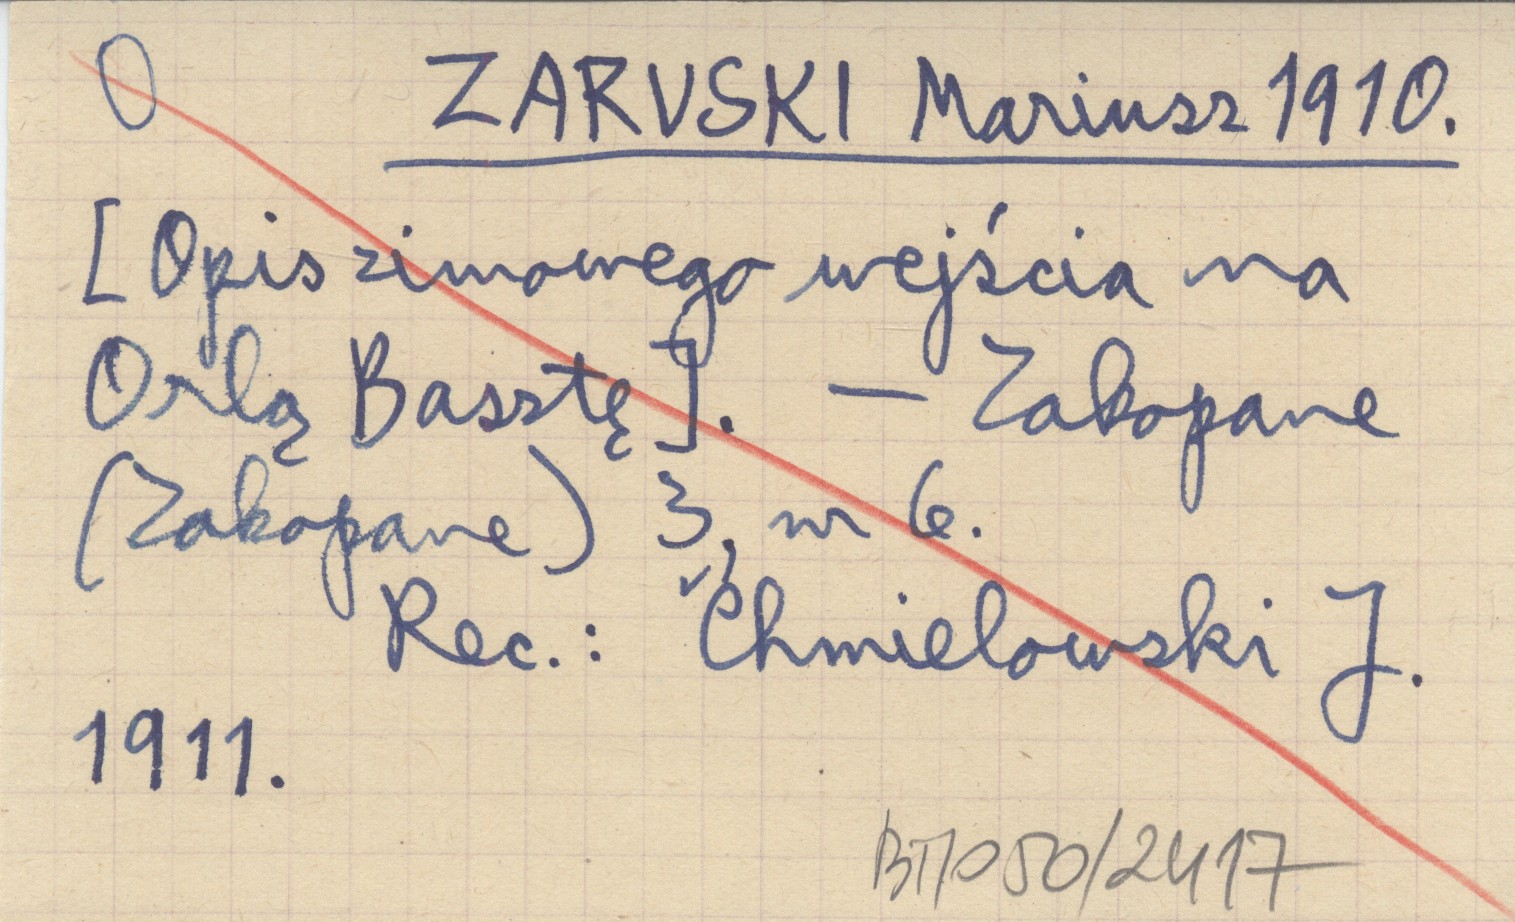 O ZARUSKI Mariusz 1910.
[Opis zimowego wejścia na
Orlą Basztę]. — Zakopane
(Zakopane) 3, nr 6.
Rec.: Chmielowski J.
1911.
BT/050/2417